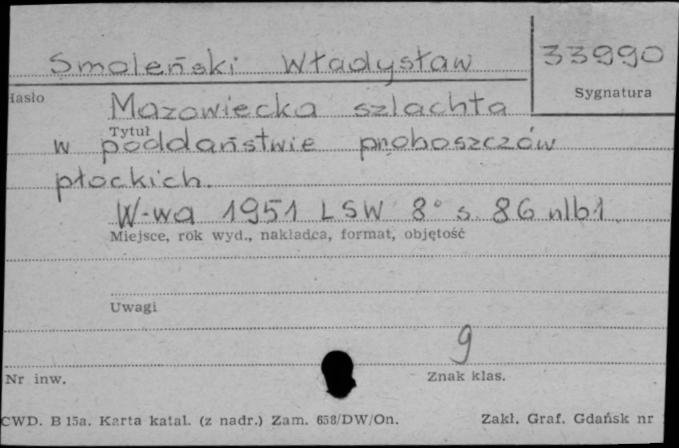 Smoleński Władysław 33990
Hasło Sygnatura
Mazowiecka szlachta
Tytuł
w poddaństwie proboszczów
płockich.
W-wa 1951 LSW 8° s. 86 nlb1
Miejsce, rok wyd., nakładca, format, objętość
Uwagi
9
Nr inw. Znak klas.
CWD. B 15a. Karta katal. (z nadr.) Zam. 658/DW/On. Zakł. Graf. Gdańsk nr